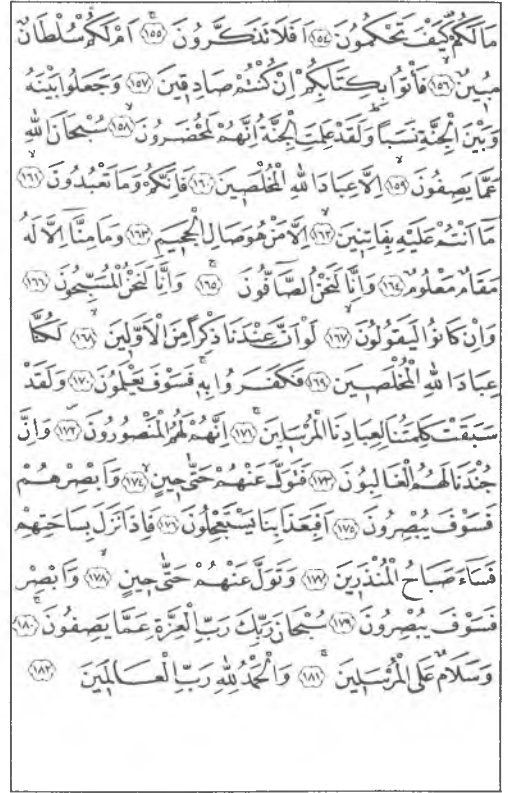 مَالَكُمْ كَيْفَ تَحْكُمُونَ ﴿١٥٤﴾ اَفَلَا تَذَكَّرُونَ ﴿١٥٥﴾ اَمْ لَكُمْ سُلْطَانٌ
مُبِينٌ ﴿١٥٦﴾ فَأْتُوا بِكِتَابِكُمْ اِنْ كُنْتُمْ صَادِقِينَ ﴿١٥٧﴾ وَجَعَلُوا بَيْنَهُ
وَبَيْنَ الْجِنَّةِ نَسَبًا وَلَقَدْ عَلِمَتِ الْجِنَّةُ اِنَّهُمْ لَمُحْضَرُونَ ﴿١٥٨﴾ سُبْحَانَ اللّٰهِ
عَمَّا يَصِفُونَ ﴿١٥٩﴾ اِلَّا عِبَادَ اللّٰهِ الْمُخْلَصِينَ ﴿١٦٠﴾ فَاِنَّكُمْ وَمَا تَعْبُدُونَ ﴿١٦١﴾
مَا اَنْتُمْ عَلَيْهِ بِفَاتِنِينَ ﴿١٦٢﴾ اِلَّا مَنْ هُوَ صَالِ الْجَحِيمِ ﴿١٦٣﴾ وَمَا مِنَّا اِلَّا لَهُ
مَقَامٌ مَعْلُومٌ ﴿١٦٤﴾ وَاِنَّا لَنَحْنُ الصَّافُّونَ ﴿١٦٥﴾ وَاِنَّا لَنَحْنُ الْمُسَبِّحُونَ ﴿١٦٦﴾
وَاِنْ كَانُوا لَيَقُولُونَ ﴿١٦٧﴾ لَوْ اَنَّ عِنْدَنَا ذِكْرًا مِنَ الْاَوَّلِينَ ﴿١٦٨﴾ لَكُنَّا
عِبَادَ اللّٰهِ الْمُخْلَصِينَ ﴿١٦٩﴾ فَكَفَرُوا بِهِ فَسَوْفَ يَعْلَمُونَ ﴿١٧٠﴾ وَلَقَدْ
سَبَقَتْ كَلِمَتُنَا لِعِبَادِنَا الْمُرْسَلِينَ ﴿١٧١﴾ اِنَّهُمْ لَهُمُ الْمَنْصُورُونَ ﴿١٧٢﴾ وَاِنَّ
جُنْدَنَا لَهُمُ الْغَالِبُونَ ﴿١٧٣﴾ فَتَوَلَّ عَنْهُمْ حَتّٰى حِينٍ ﴿١٧٤﴾ وَاَبْصِرْهُمْ
فَسَوْفَ يُبْصِرُونَ ﴿١٧٥﴾ اَفَبِعَذَابِنَا يَسْتَعْجِلُونَ ﴿١٧٦﴾ فَاِذَا نَزَلَ بِسَاحَتِهِمْ
فَسَاءَ صَبَاحُ الْمُنْذَرِينَ ﴿١٧٧﴾ وَتَوَلَّ عَنْهُمْ حَتّٰى حِينٍ ﴿١٧٨﴾ وَاَبْصِرْ
فَسَوْفَ يُبْصِرُونَ ﴿١٧٩﴾ سُبْحَانَ رَبِّكَ رَبِّ الْعِزَّةِ عَمَّا يَصِفُونَ ﴿١٨٠﴾
وَسَلَامٌ عَلَى الْمُرْسَلِينَ ﴿١٨١﴾ وَالْحَمْدُ لِلّٰهِ رَبِّ الْعَالَمِينَ ﴿١٨٢﴾